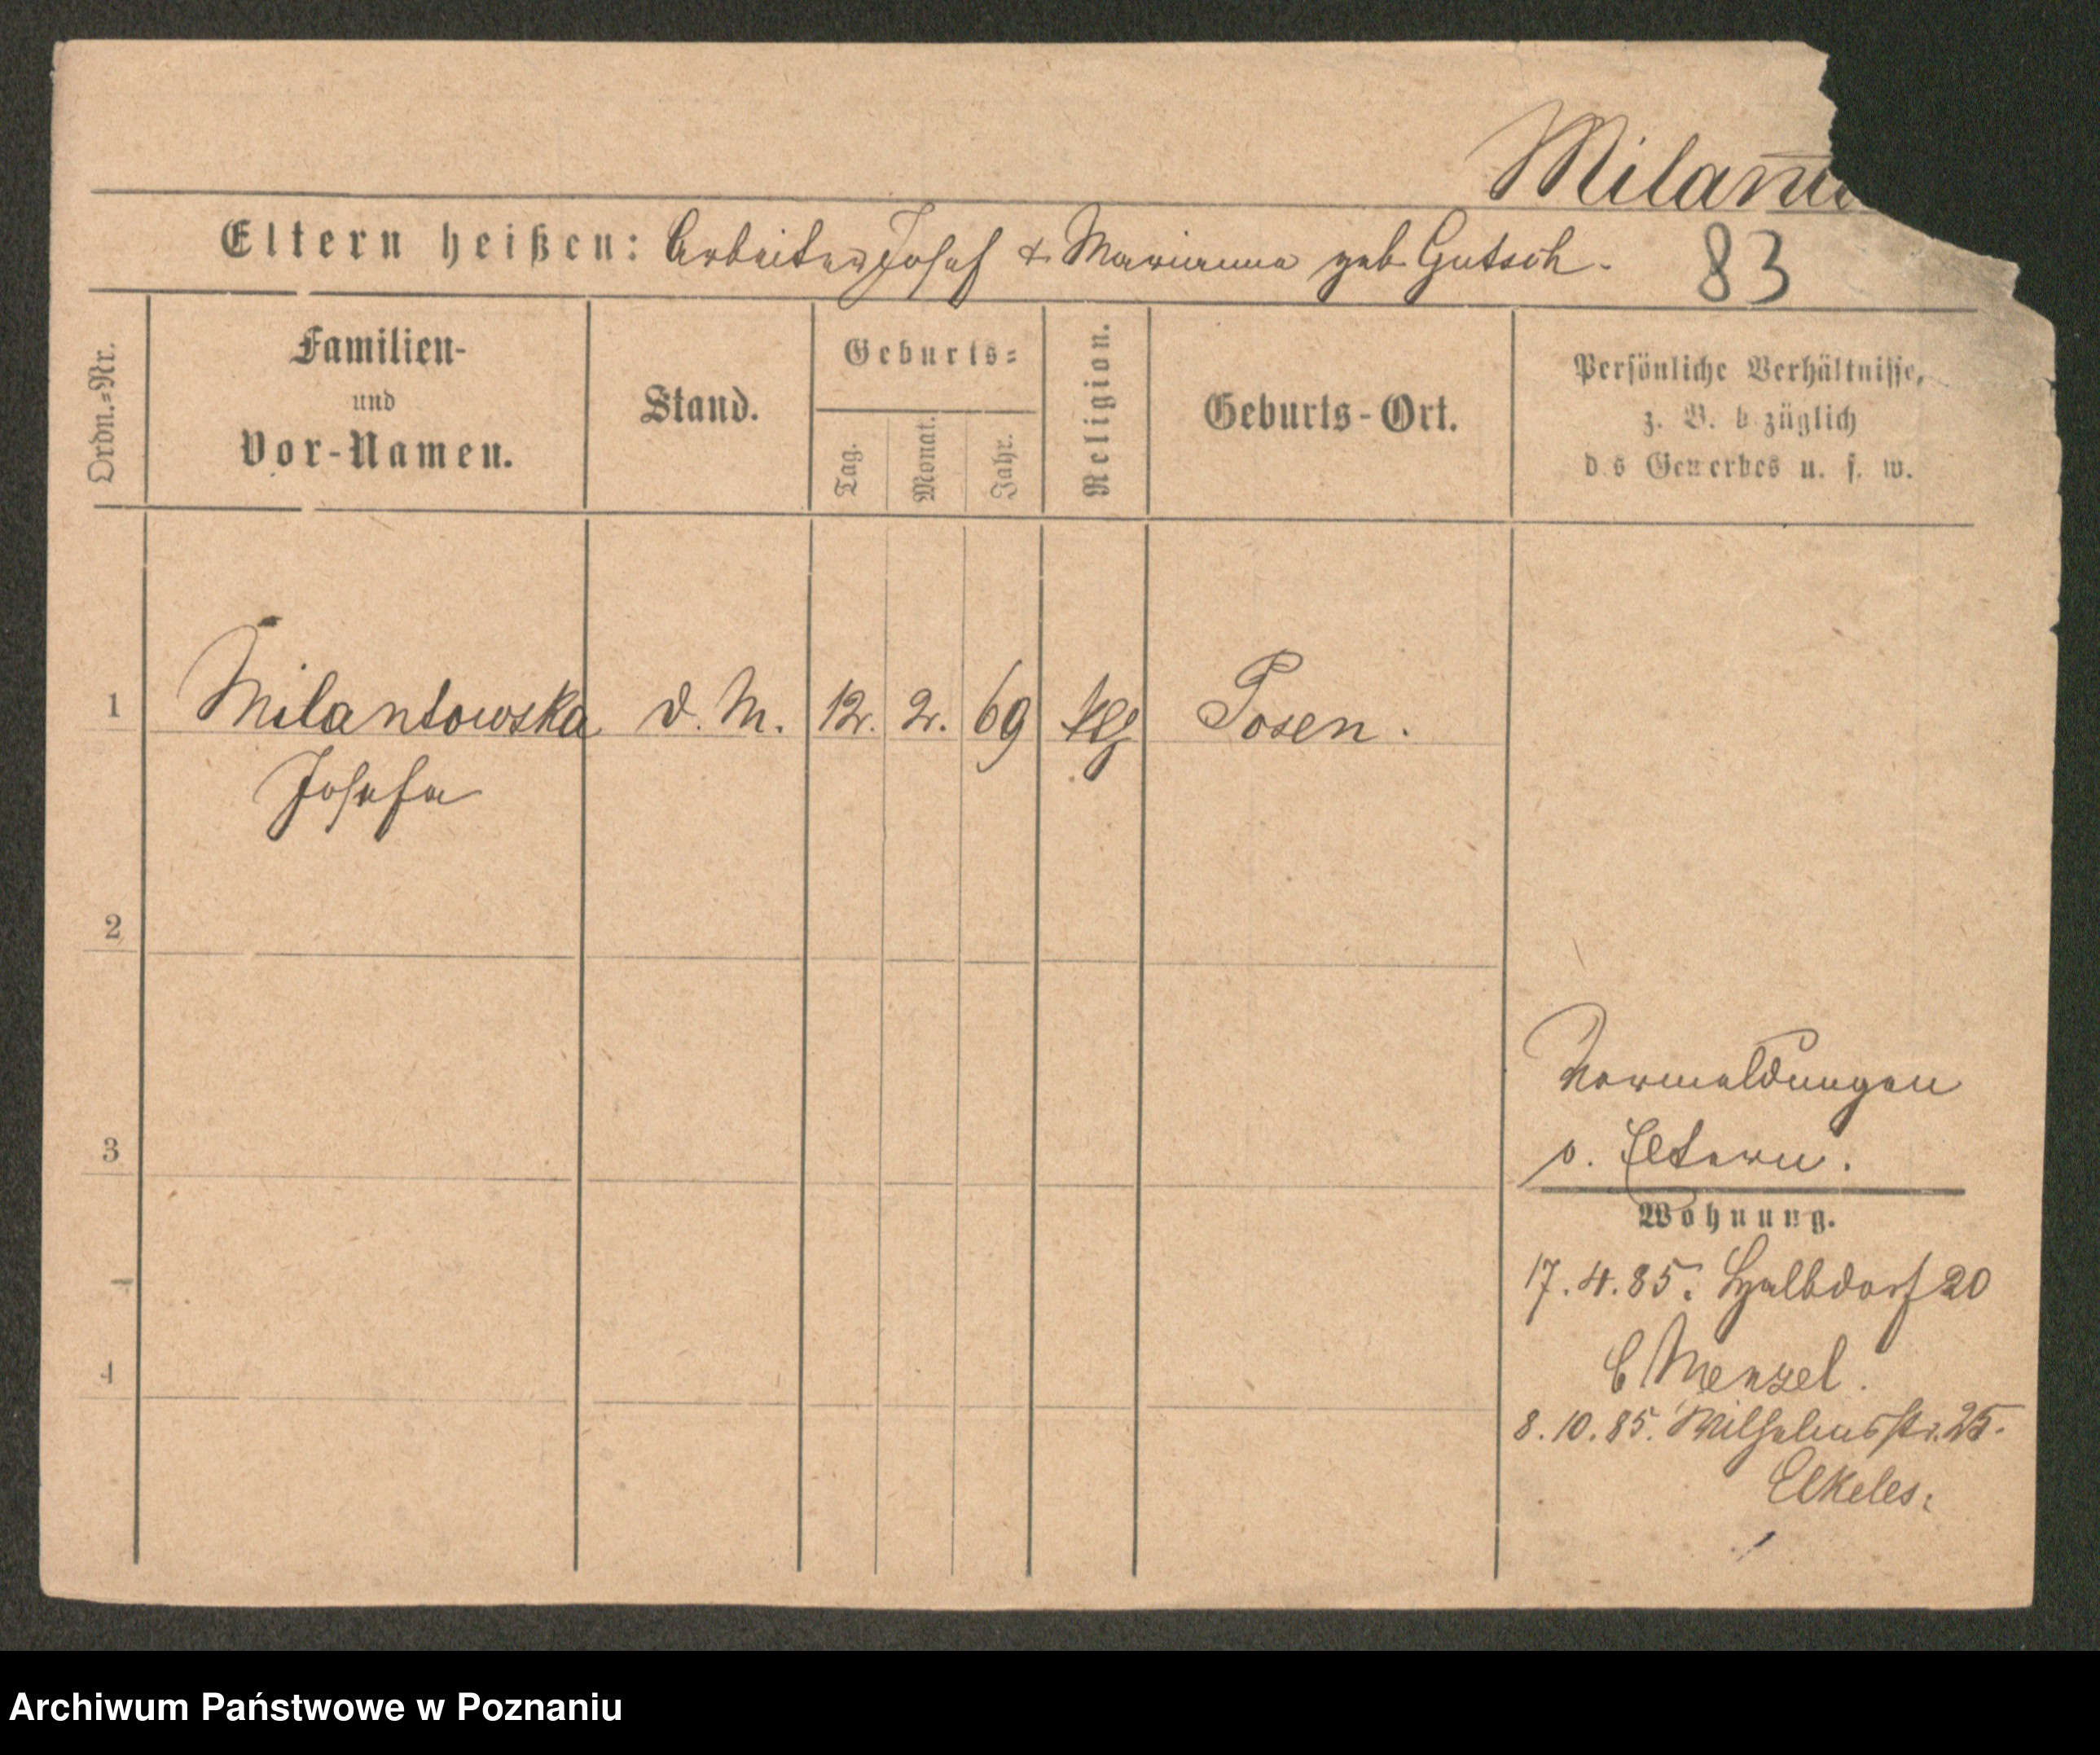 Milan
Eltern heißen: Arbeiter Josef & Marianna geb Gutsch.
83
Ordn.-Nr.
Familien-
und
Vor-Namen.
Stand.
Geburts-
Tag.
Monat.
Jahr.
Religion.
Geburts-Ort.
Persönliche Verhältnisse,
z. B. b züglich
d s Gewerbes u. s. w.
1 Milantowska d. M. 12. 2. 69 Posen.
Josefa
2
3
4
Vormeldungen
s. Eltern.
Wohnung.
17.4.85. Halbdorf 20
b Menzel.
8.10.85. Wilhelmsstr. 25.
Elkeles.
Archiwum Państwowe w Poznaniu